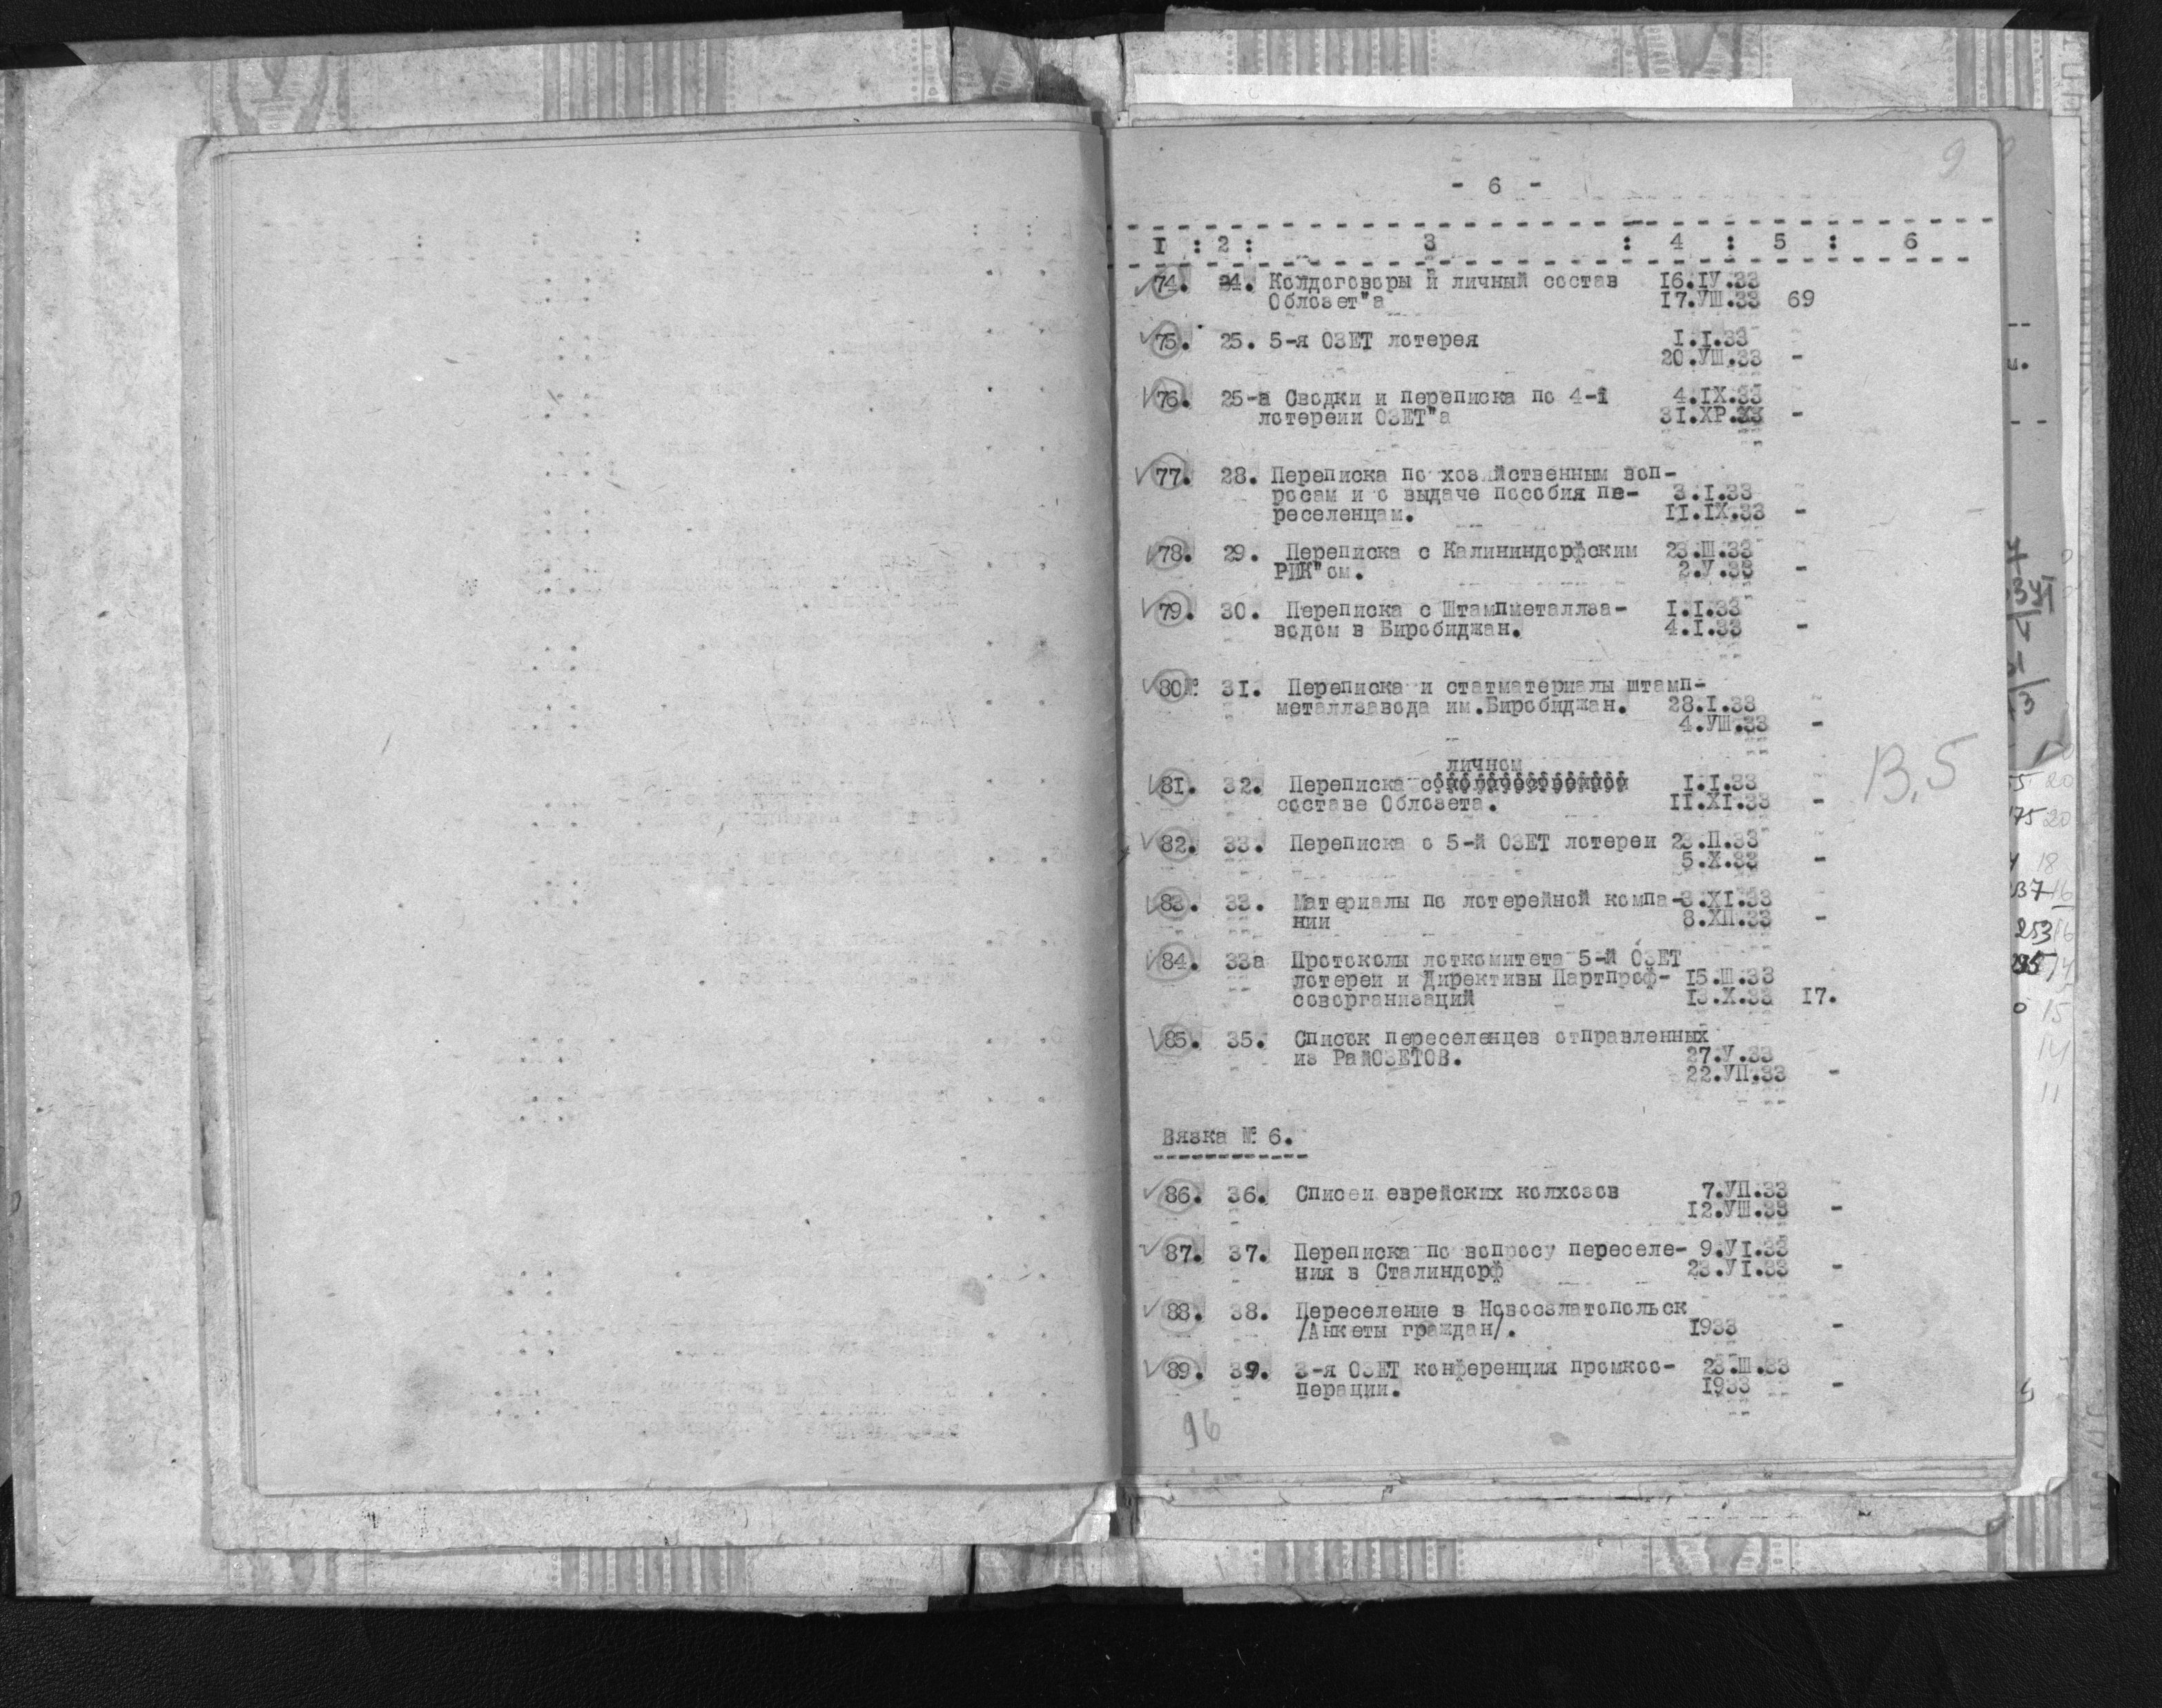 9
- 6 -
I : 2 : 3 : 4 : 5 : 6
74. 24. Колдоговоры и личный состав 16.IУ.33
Облозет"а 17.УШ.33 69
75. 25. 5-я ОЗЕТ лотерея I.I.33
20.УШ.33 -
76. 25-а Сводки и переписка по 4-й 4.IX.33
лотереии ОЗЕТ"а 31.ХР.33 -
77. 28. Переписка по хозяйственным воп-
росам и о выдаче пособия пе- 3.I.33
реселенцам. II.IX.33 -
78. 29. Переписка с Калининдорфским 23.Ш.33
РИК"ом. 2.У.33 -
79. 30. Переписка с Штампметаллза- I.I.33
водом в Биробиджан. 4.I.33 -
80. 31. Переписка и статматериалы штамп-
металлзавода им.Биробиджан. 28.I.33
4.УШ.33 -
личном
81. 32. Переписка о I.I.33
составе Облозета. II.XI.33 -
В,5
82. 33. Переписка о 5-й ОЗЕТ лотереи 23.П.33
5.Х.33 -
83. 33. Материалы по лотерейной компа-3.XI.33
нии 8.ХП.33 -
84. 33а Протоколы лоткомитета 5-й ОЗЕТ
лотереи и Директивы Партпроф- 15.Ш.33
соворганизаций 13.Х.33 17.
85. 35. Список переселенцев отправленных
из РайОЗЕТОВ. 27.У.33
22.УП.33 -
Вязка № 6.
86. 36. Списеи еврейских колхозов 7.УП.33
12.УШ.33 -
87. 37. Переписка по вопросу переселе- 9.УI.33
ния в Сталиндорф 23.УI.33 -
88. 38. Переселение в Новозлатопольск
/Анкеты граждан/. 1933 -
89. 39. 3-я ОЗЕТ конференция промкоо- 23.Ш.33
перации. 1933 -
96